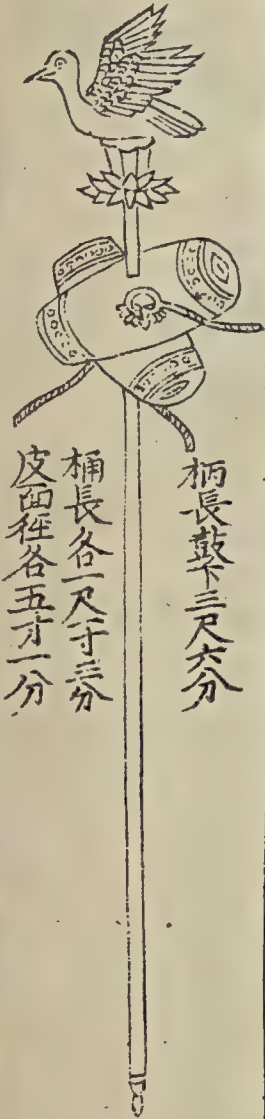 柄長鼓下三尺六分
桶長各一尺一寸三分
皮面径各五寸一分